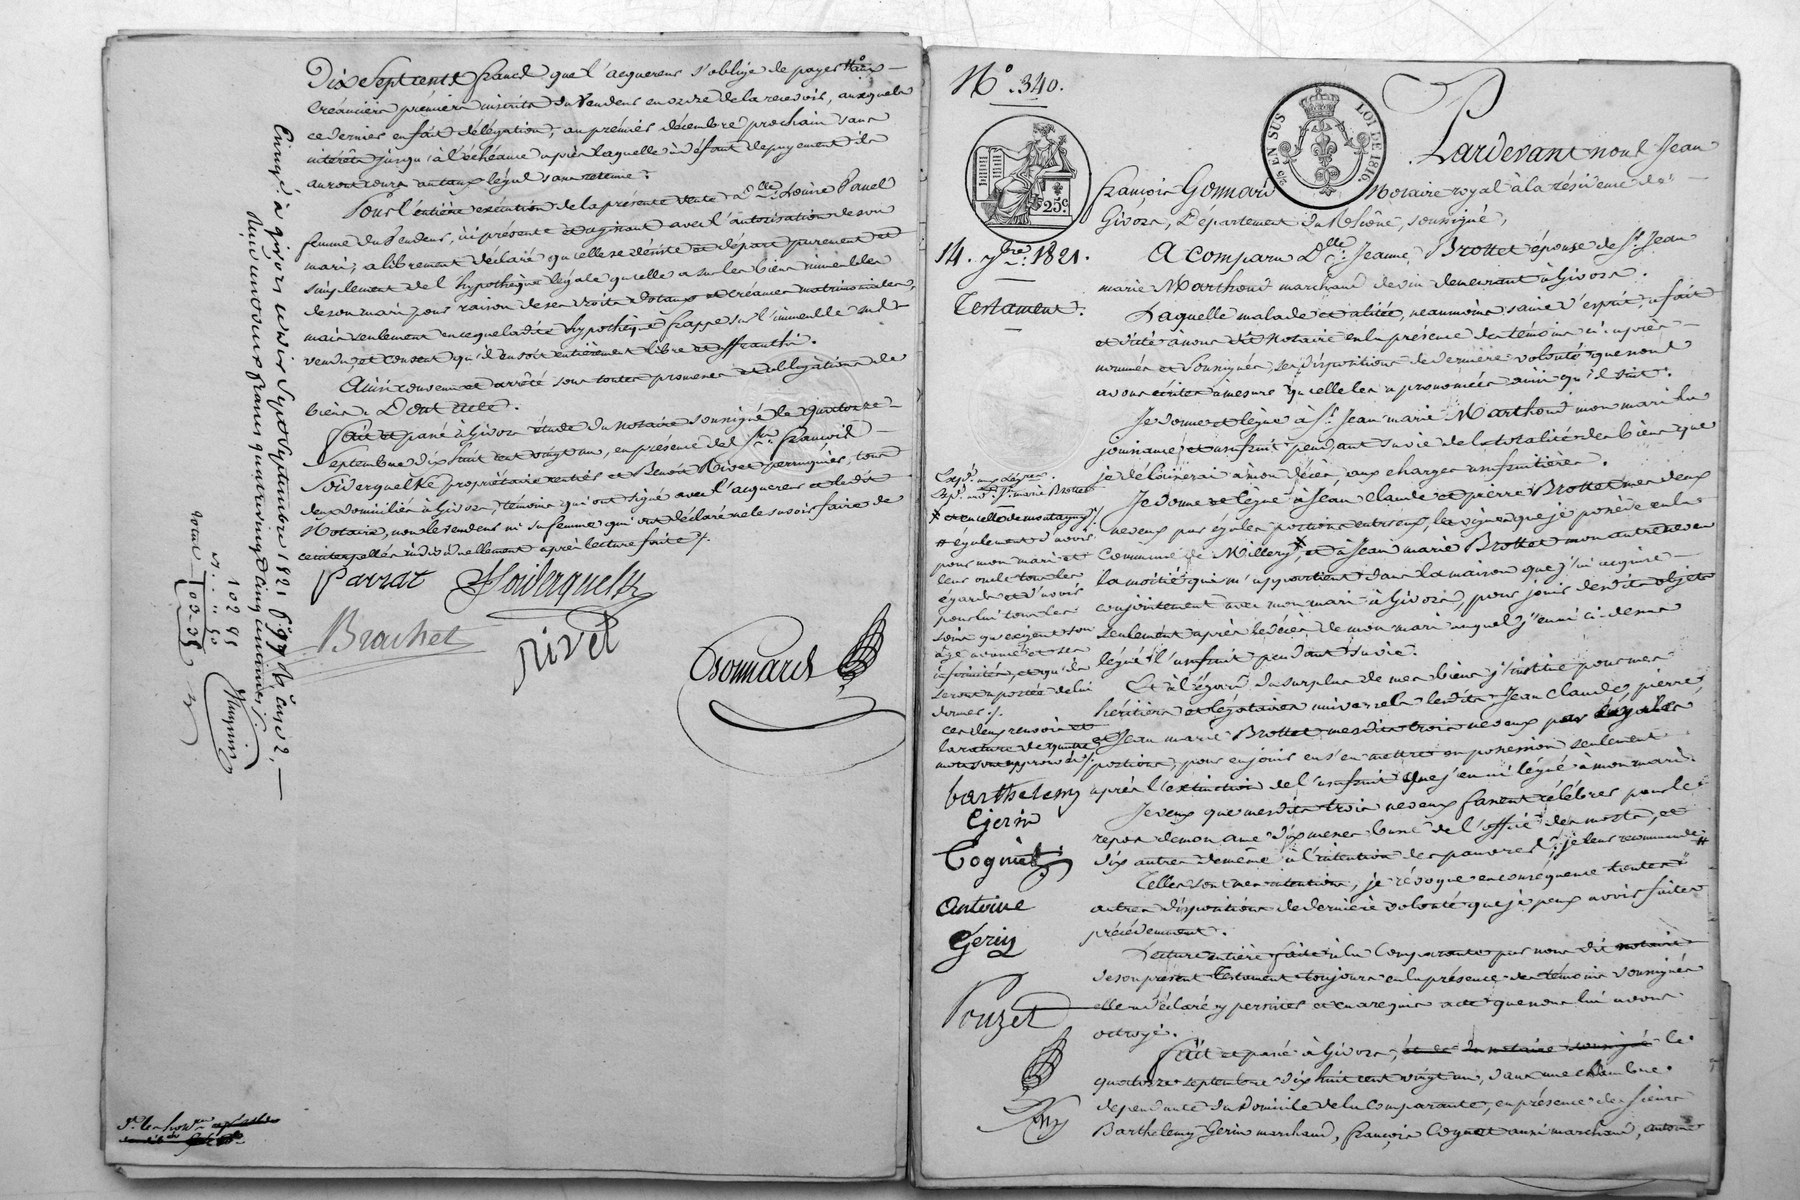 Dix Sept cents francs que l'acquereur s'oblige de payer aux
Créanciers premiers inscrits du Vendeur en ordre de la recevoir, auxquels
ce dernier en fait délégation, au premier décembre prochain sans
intérêts jusqu'à l'échéance après laquelle à défaut de payement ils
auront cours au taux légal sans retenue.
Pour l'entière exécution de la présente vente D.lle Louise Panel
femme du Vendeur, ici présente et agissant avec l'autorisation de son
mari, a librement déclaré qu'elle se désiste et départ purement et
simplement de l'hypothèque légale qu'elle a sur les biens immeubles
de son mari pour raison de ses droits dotaux et créances matrimoniales,
mais seulement en ce que ladite hypothèque frappe sur l'immeuble sus
vendu, et consent qu'il en soit entièrement libre et affranchi.
Ainsi convenu et arrêté sous toutes promesses et obligations de
biens. Dont Acte.
Fait et passé à Givors étude du notaire soussigné le quatorze
Septembre dix huit cent vingt un, en présence des Srs. François
Soiderquelk propriétaire rentier et Benoit Rivet perruquier, tous
deux domiciliés à Givors, témoins qui ont signé avec l'acquereur et ledit
Notaire, non le vendeur ni sa femme qui ont déclaré ne le savoir faire de
ce interpellés individuellement après lecture faite ./.
Parrat Soiderquelk
Brachet Rivet
Gonnard
Enreg.é à givors le dix Sept Septembre 1821 f.o 97 R.o case 2.
Reçu cent deux francs quatrevingt cinq centimes ./.
102 85
N.o 340.
EN SUS
LOI DE 1816
25c
14. 7bre 1821.
Testament.
Pardevant nous Jean
François Gonnard Notaire royal à la résidence de
Givors, Département du Rhône, soussigné,
A comparu D.lle Jeanne Brottet épouse de Sr. Jean
marie Marthoud marchand de vin demeurant à Givors.
Laquelle malade et alitée, neanmoins saine d'esprit a fait
et dicté à nous dit Notaire en la présence des témoins ci-après
nommés et soussignés, ses dispositions de dernière volonté que nous
avons écrites à mesure qu'elle les a prononcées ainsi qu'il suit.
Je donne et lègue à Sr. Jean marie Marthoud mon mari la
jouissance et usufruit pendant sa vie de la totalité des biens que
je délaisserai à mon décès, aux charges usufruitières.
Je donne et lègue à Jean Claude et pierre Brottet mes deux
neveux par égales portions entr'eux, les vignes que je possède en la
Commune de Millery, et à Jean marie Brottet mon autre neveu
la moitié qui m'appartient dans la maison que j'ai acquise
conjointement avec mon mari à Givors, pour jouir desdits objets
seulement après le décès de mon mari auquel j'en ai ci-dessus
légué l'usufruit pendant sa vie.
Et à l'égard du surplus de mes biens j'institue pour mes
héritiers et légataires universels lesdits Jean Claude, pierre
et Jean marie Brottet mesdits trois neveux par égales
portions, pour en jouir et s'en mettre en possession seulement
après l'extinction de l'usufruit que j'en ai légué à mon mari.
Je veux que mesdits trois neveux fassent célébrer pour le
repos de mon ame dix messes basses de l'office des morts, et
dix autres de même à l'intention des pauvres; je leur recommande #
Telles sont mes intentions, je révoque en conséquence toutes
autres dispositions de dernière volonté que je peux avoir faites
précédemment.
Lecture entière faite à la Comparante par nous dit notaire
de son présent Testament toujours en la présence des témoins soussignés
elle a déclaré y persister et en a requis acte que nous lui avons
octroyé.
Fait et passé à Givors, le
quatorze septembre dix huit cent vingt un, dans une chambre
dépendante du Domicile de la Comparante, en présence des Sieurs
Barthelemy Gerin marchand, François Cognet aussi marchand, antoine
X et en celle de montagny ./.
# également d'avoir
pour mon mari et
leur oncle tous les
égards et d'avoir
pour lui tous les
soins qu'exigent son
âge avancé et ses
infirmités, et qu'ils
seront à portée de lui
donner ./.
ces deux renvois et
la rature de quatre
mots sont approuvés ./.
barthelemy
Gerin
Cognet
Antoine
Gerin
Pouzet